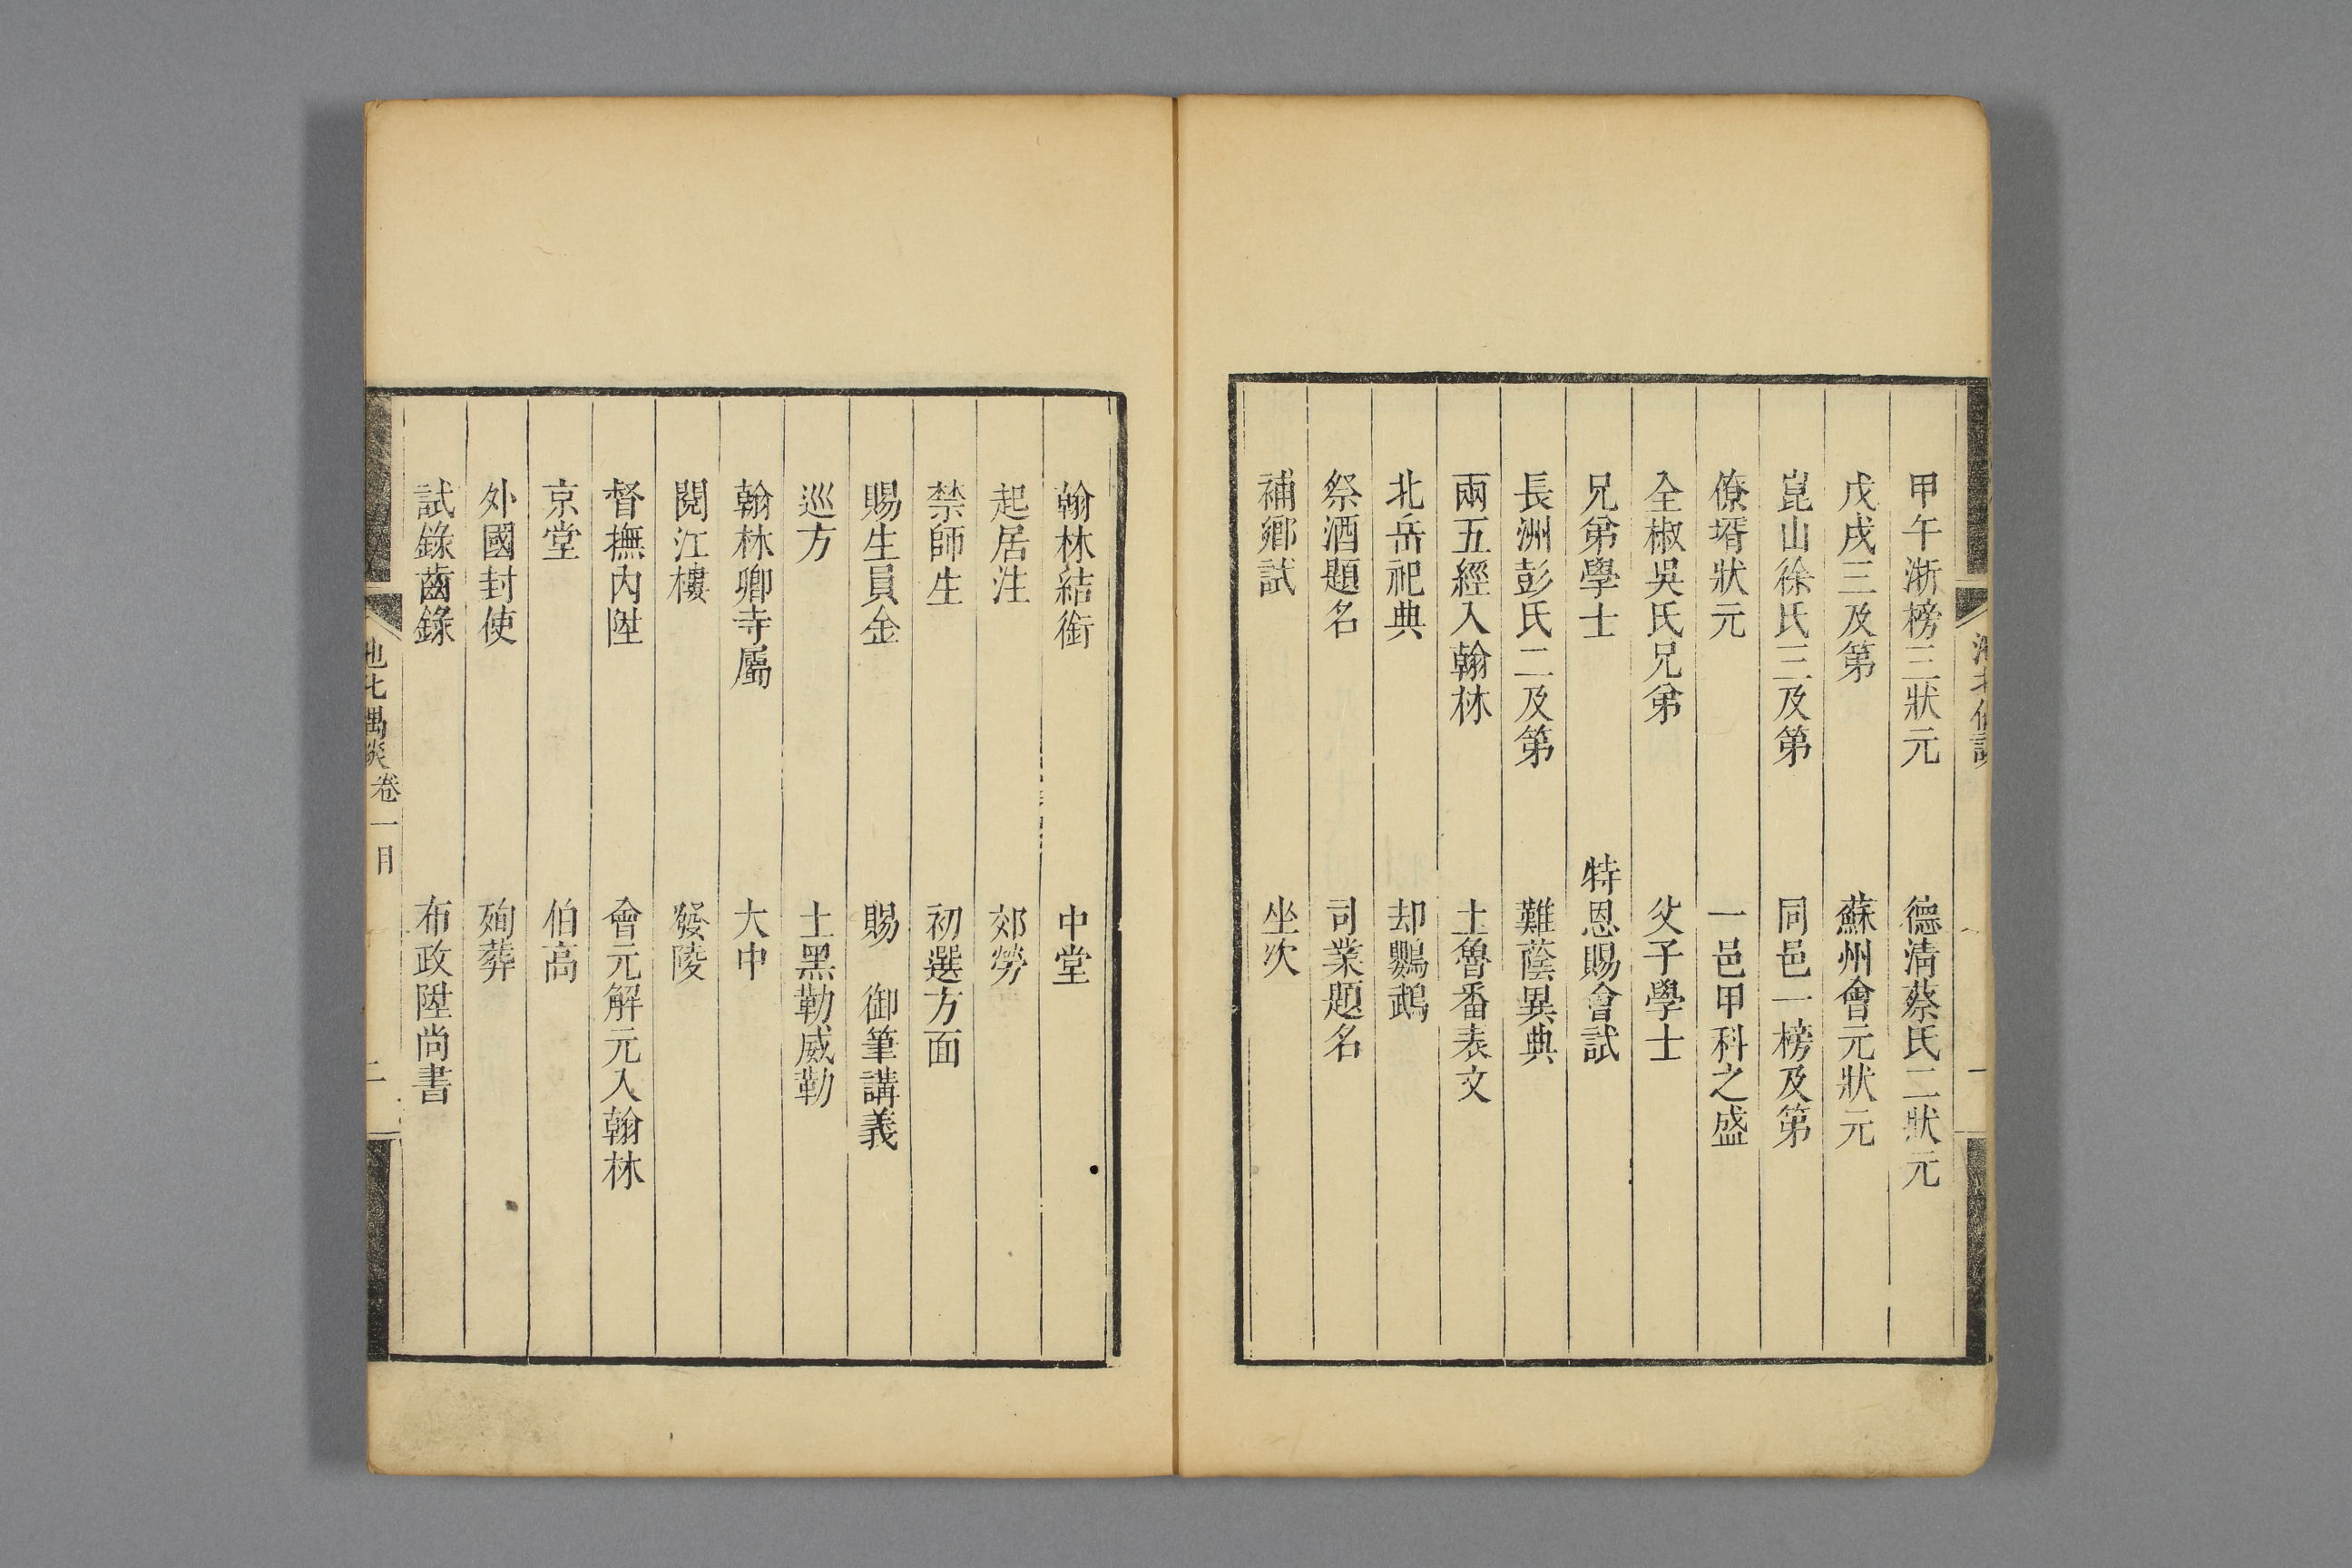 甲午浙榜三狀元　德清蔡氏二狀元
戊戌三及第　蘇州會元狀元
崑山徐氏三及第　同邑一榜及第
僚壻狀元　一邑甲科之盛
全椒吳氏兄弟　父子學士
兄弟學士　特恩賜會試
長洲彭氏二及第　難蔭異典
兩五經入翰林　土魯番表文
北岳祀典　却鸚鵡
祭酒題名　司業題名
補鄉試　坐次
翰林結銜　中堂
起居注　郊勞
禁師生　初選方面
賜生員金　賜　御筆講義
巡方　土黑勒威勒
翰林卿寺屬　大中
閱江樓　發陵
督撫內陞　會元解元入翰林
京堂　伯高
外國封使　殉葬
試錄齒錄　布政陞尚書
卷一目　二